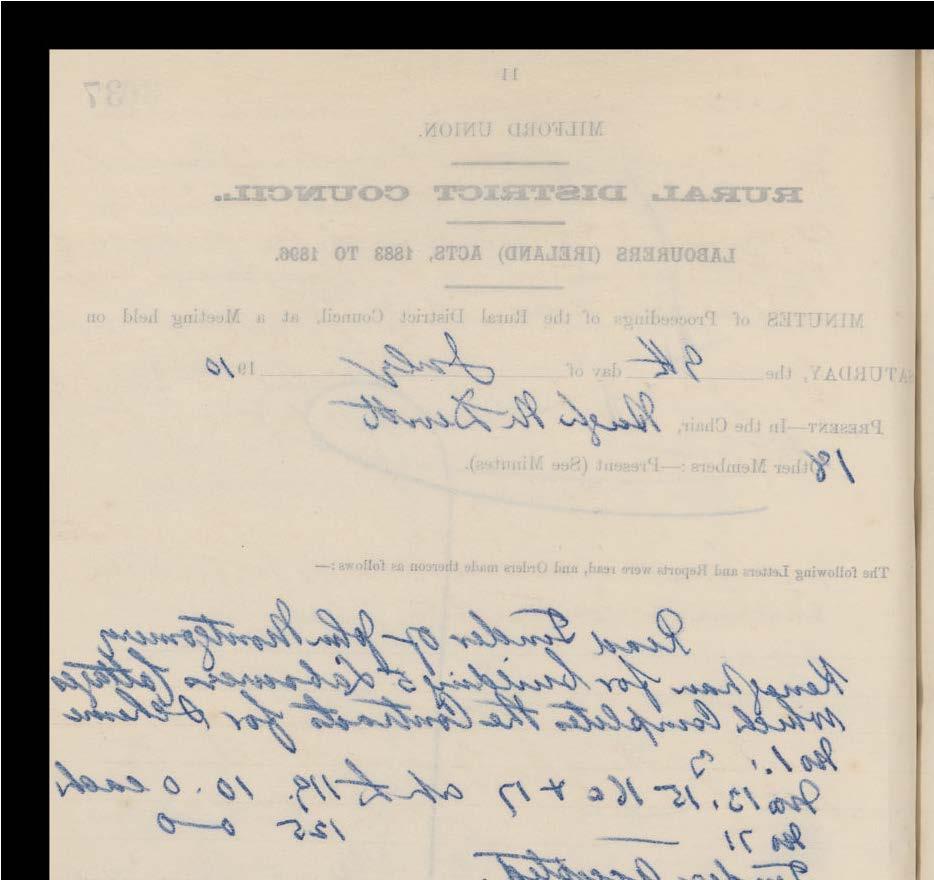 11
37
MILFORD UNION.
RURAL DISTRICT COUNCIL.
LABOURERS (IRELAND) ACTS, 1883 TO 1896.
MINUTES of Proceedings of the Rural District Council, at a Meeting held on
SATURDAY, the 9th day of July 1910
PRESENT—In the Chair, Hugh
18 Other Members :—Present (See Minutes).
The following Letters and Reports were read, and Orders made thereon as follows:—
Read Tender of John Montgomery
for building 5 Labourers Cottages
which completes the Contracts for Scheme
No 1.
No 13. 15 16a & 17 at £119. 10. 0 each
No 71 — 125 0 0
Tender accepted.